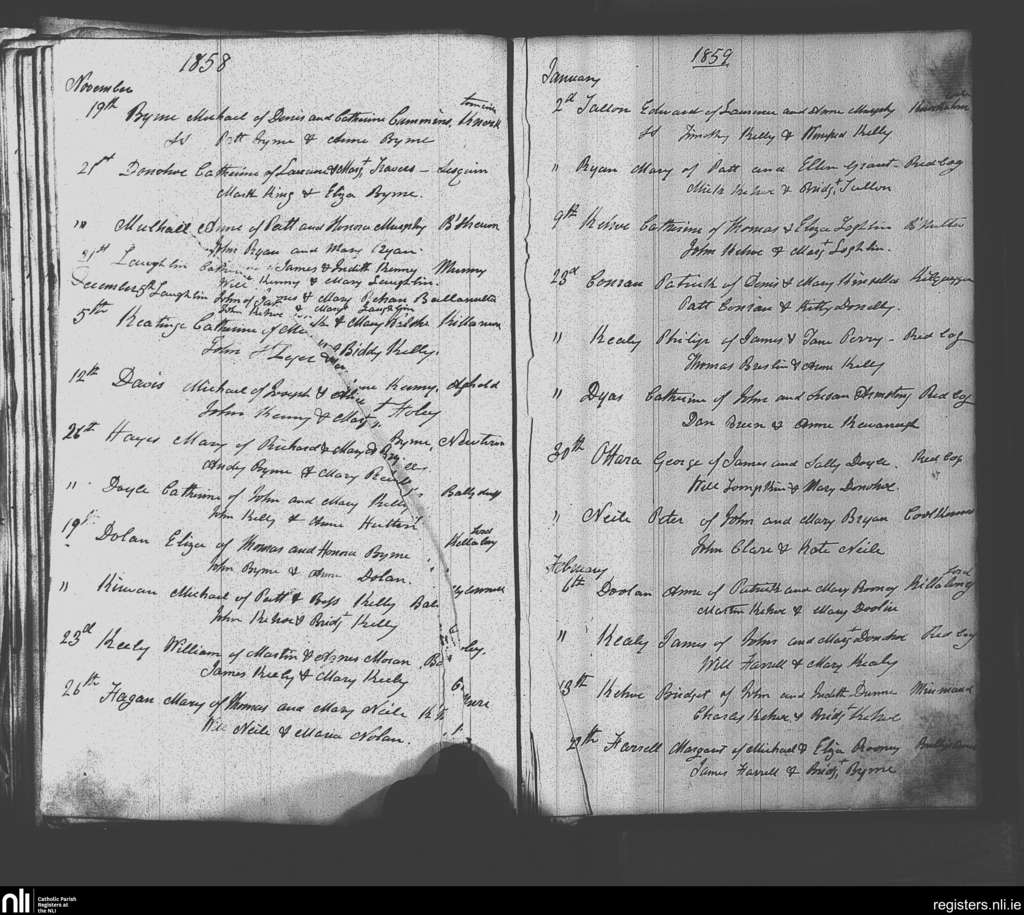 1858
November
19th Byrne Michael of Denis and Catherine Cummins,
Ss Patt Byrne & Anne Byrne
21st Donohoe Catherine of Laurence & Margt Travers -
Mark King & Eliza Byrne.
"" Mulhall Anne of Patt and Honora Murphy
John Ryan and Mary Ryan.
21st Laughlin Catherine James & Judith Kenny Munny
Willm Kenny & Mary Laughlin.
December 5th Laughlin John of James & Mary Behan
John Kehoe Mary Laughlin
5th Keatinge Catherine of & Mary
John & Biddy Kelly.
12th Davis Michael of Joseph & Kenny, Aghold
John Kenny & Margt Foley
26th Hayes Mary of Richard & Mary Byrne,
Andy Byrne & Mary
" Doyle Catherine of John and Mary Kelly
John Kelly & Anne
19th Dolan Eliza of Thomas and Honora Byrne
John Byrne & Anne Dolan.
" Kirwan Michael of Patt & Bess Kelly
John Kehoe & Bridgt Kelly
23rd Keely William of Martin & Agnes Moran
James Keely & Mary Keely
26th Fagan Mary of Thomas and Mary Neile
Will Neile & Maria Nolan.
1859
January
2d Tallon Edward of Laurence and Anne Murphy
Ss Timothy Kelly & Winifred Kelly
" Ryan Mary of Patt and Ellen Grant - Red Bog
Mick Kehoe & Bridgt Tallon
9th Kehoe Catherine of Thomas & Eliza Loghlin
John Kehoe & Margt Loghlin.
23d Conran Patrick of Denis & Mary Kinsella
Patt Conran & Kitty Donelly.
" Kealy Philip of James & Jane Perry - Red Bog
Thomas Breslin & Anne Kelly
" Dyas Catherine of John and Susan Armstrong Red Bog
Dan Breen & Anne Kavanagh
30th O'Hara George of James and Sally Doyle. Red Bog
Will Tompkin & Mary Donohoe
" Neile Peter of John and Mary Bryan
John Clare & Kate Neile
February
6th Doolan Anne of Patrick and Mary Rooney
Martin Kehoe & Mary Doolin
" Kealy James of John and Margt Donohoe Red Bog
Will Farrell & Mary Kealy
13th Kehoe Bridget of John and Judith Dunne
Charles Kehoe & Bridgt Kehoe
27th Farrell Margaret of Michael & Eliza Rooney
James Farrell & Bridgt Byrne
nli
Catholic Parish
Registers at
the NLI
registers.nli.ie